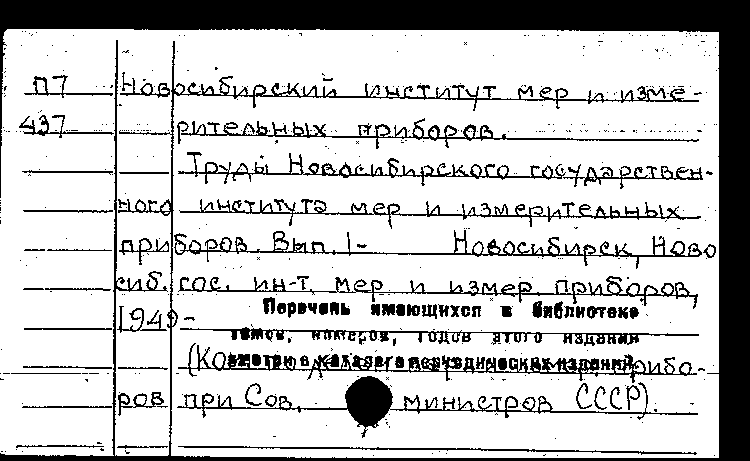 П7 Новосибирский институт мер и изме-
437 рительных приборов.
Труды Новосибирского государствен-
ного института мер и измерительных
приборов. Вып. 1- Новосибирск, Ново
сиб. гос. ин-т мер и измер. приборов,
1949-
Перечень имеющихся в библиотеке
томов, номеров, годов этого издания
смотри в каталоге периодических изданий.
(Ко прибо-
ров при Сов. министров СССР).